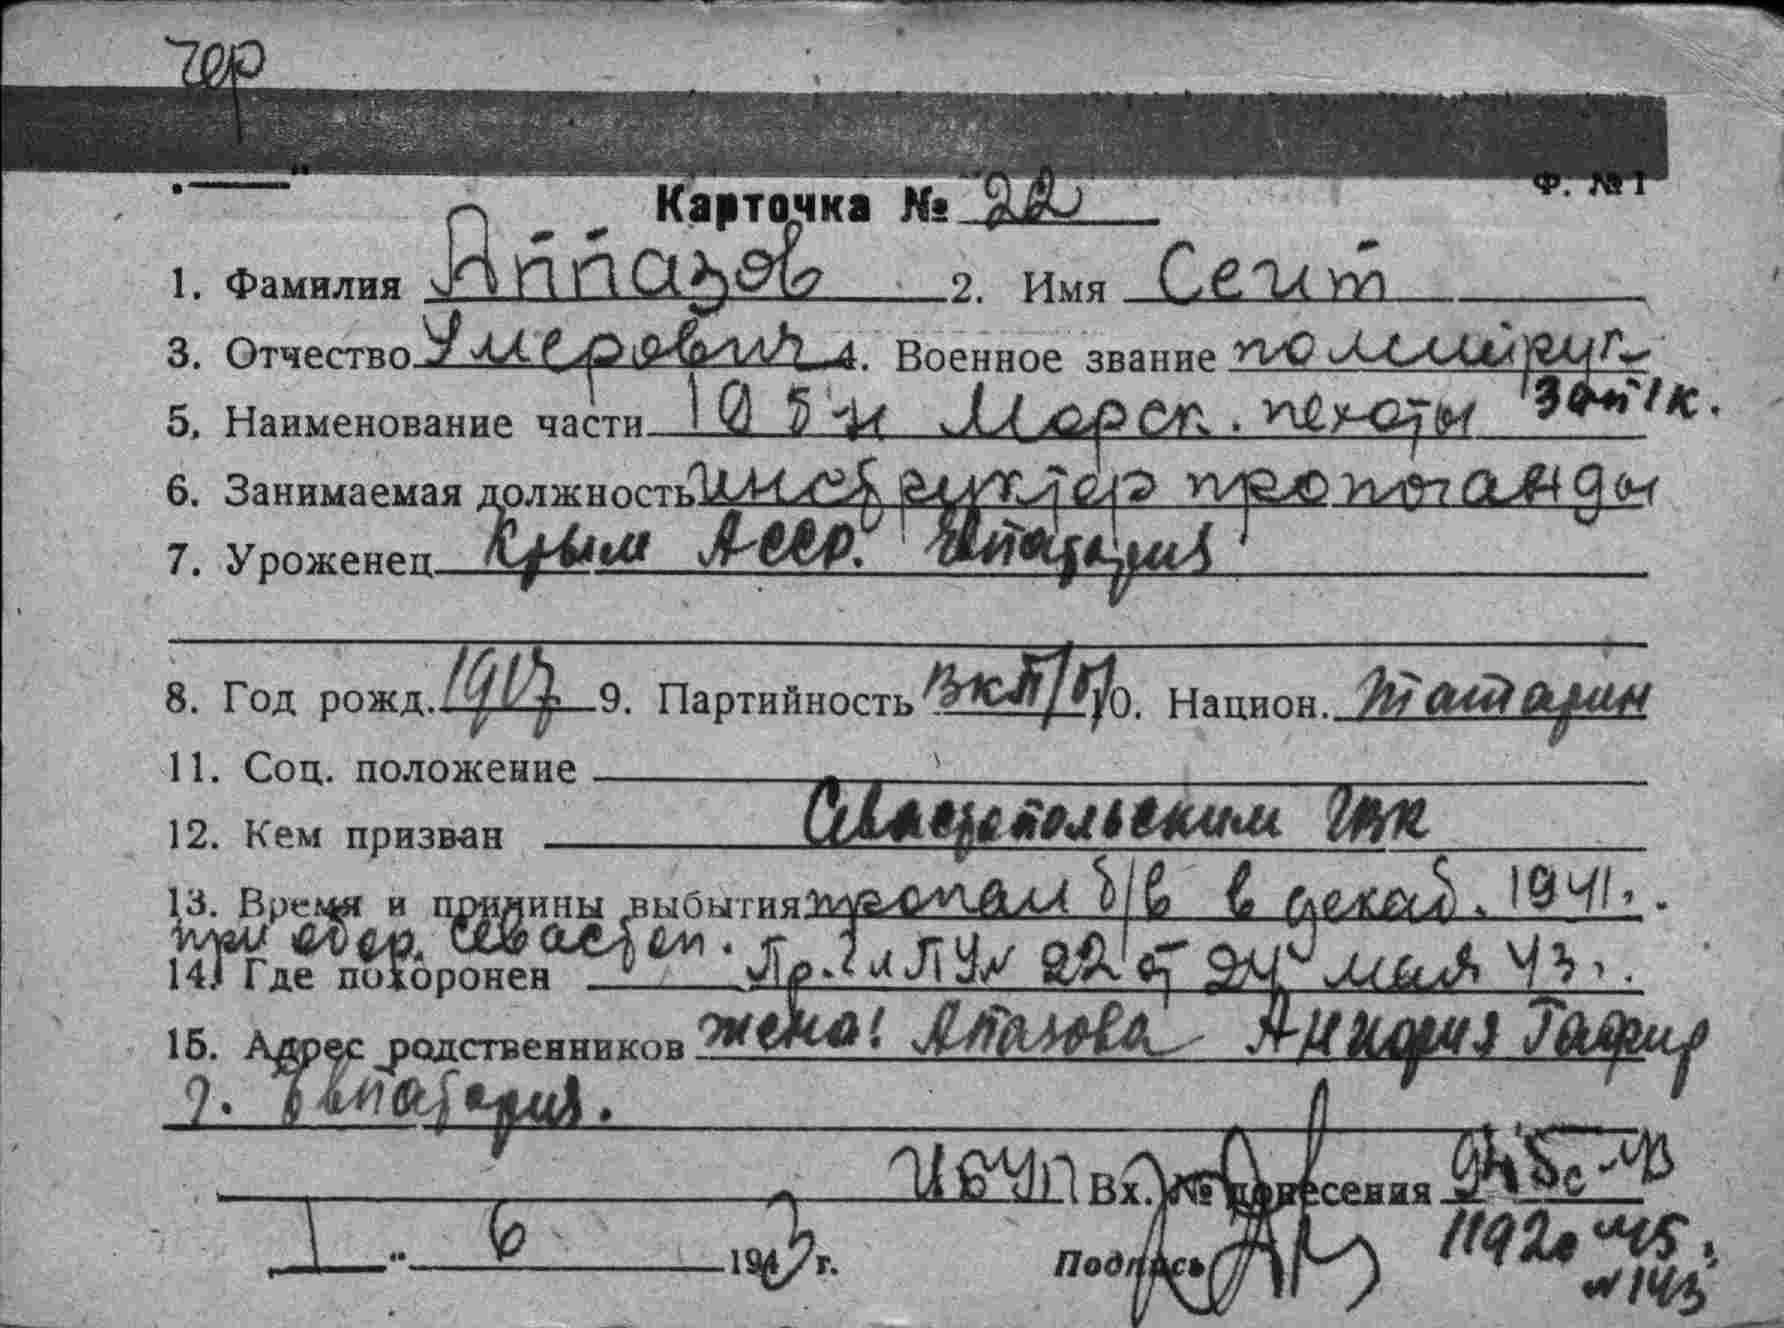 чер
Ф. № 1
Карточка № 22
1. Фамилия Аппазов 2. Имя Сеит
3. Отчество Умерович 4. Военное звание политрук
5. Наименование части 1 О б-н Морск. пехоты зап/к.
6. Занимаемая должность инструктор пропоганды
7. Уроженец Крым АССР. Евпатория
8. Год рожд. 1917 9. Партийность ВКП/б/ 10. Национ. татарин
11. Соц. положение
12. Кем призван Севастопольским ГВК
13. Время и причины выбытия пропал б/в в декаб. 1941.
при обор. Севастоп.
14. Где похоронен Пр. ПУ № 22 от 24 мая 43.
15. Адрес родственников жена: Апазова Гафир
г. Евпатория.
Вх. № донесения
1 " 6 1943 г. Подпись 11920 45.
№ 143